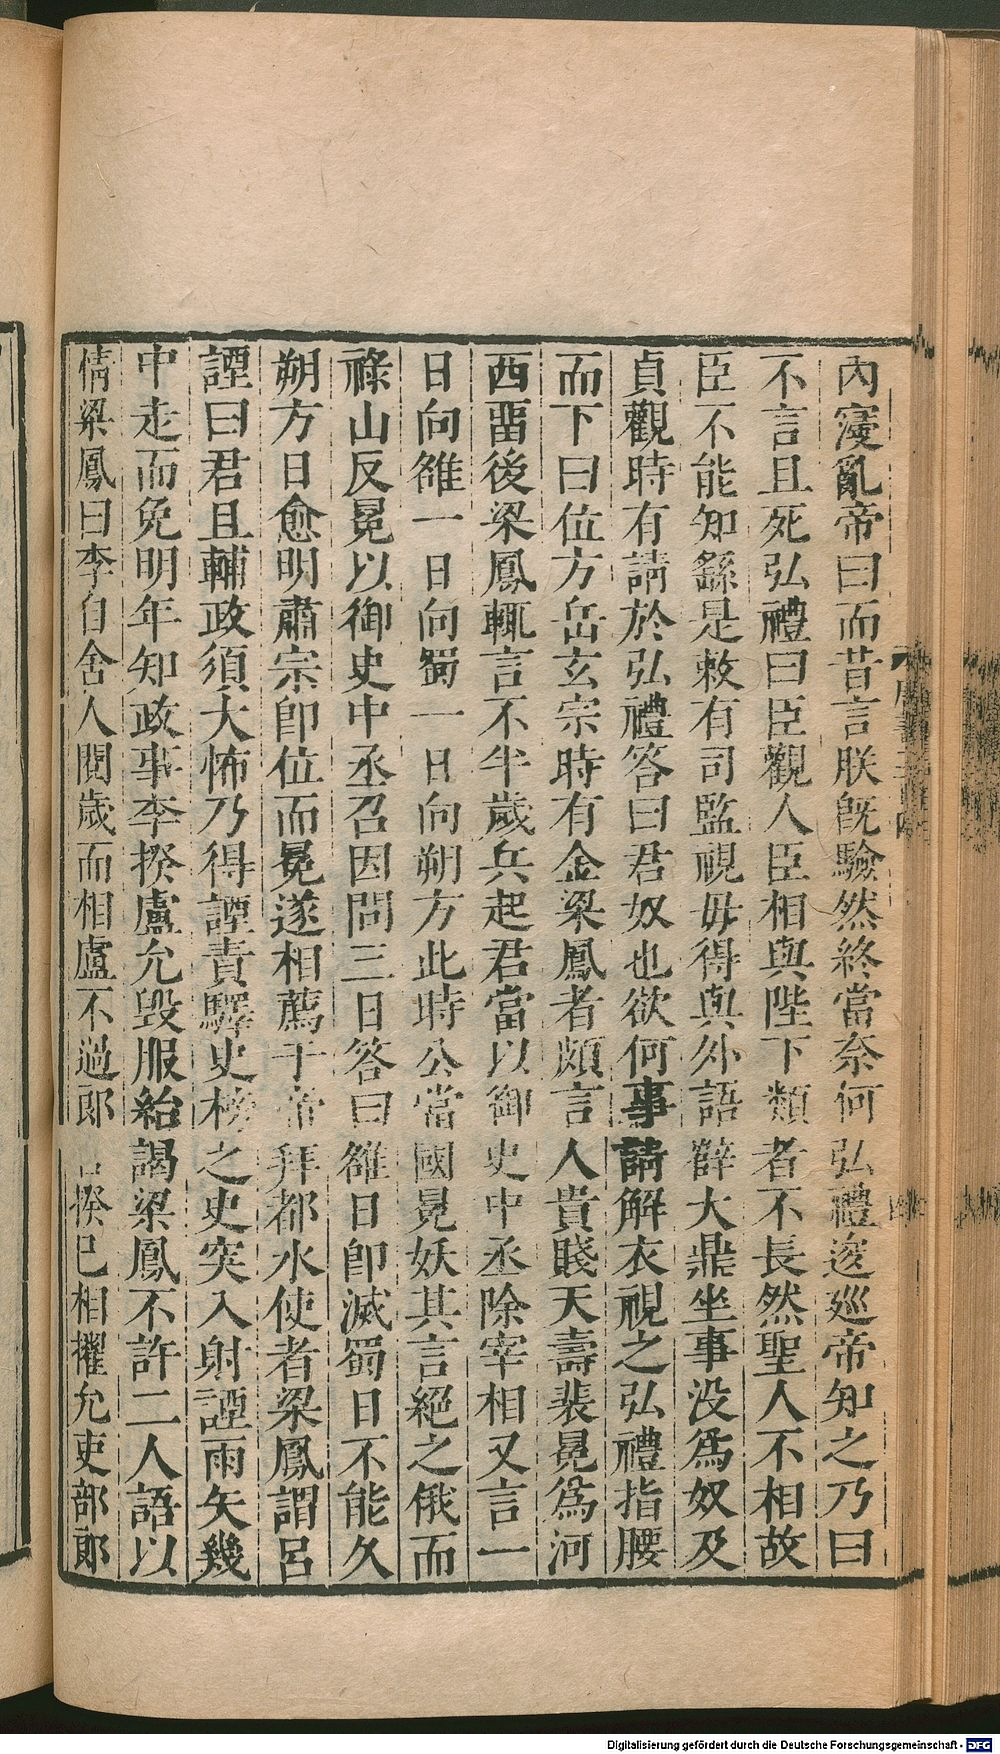 內寖亂帝曰而昔言朕旣驗然終當奈何弘禮逡廵帝知之乃曰
不言且死弘禮曰臣觀人臣相與陛下類者不長然聖人不相故
臣不能知繇是敕有司監視毋得與外語薛大鼎坐事没爲奴及
貞觀時有請於弘禮答曰君奴也欲何事請解衣視之弘禮指腰
而下曰位方岳玄宗時有金梁鳳者頗言人貴賤夭壽裴冕爲河
西畱後梁鳳輒言不半歲兵起君當以御史中丞除宰相又言一
日向雒一日向蜀一日向朔方此時公當國冕妖其言絕之俄而
祿山反冕以御史中丞召因問三日答曰雒日卽滅蜀日不能久
朔方日愈明肅宗卽位而冕遂相薦于帝拜都水使者梁鳳謂呂
諲曰君且輔政須大怖乃得諲責驛史榜之史突入射諲雨矢幾
中走而免明年知政事李揆盧允毀服紿謁梁鳳不許二人語以
情梁鳳曰李自舍人閱歲而相盧不過郎揆已相擢允吏部郎
Digitalisierung gefördert durch die Deutsche Forschungsgemeinschaft - DFG